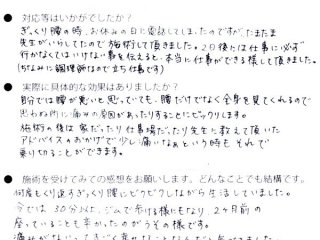 ● 対応等はいかがでしたか?
ぎっくり腰の時、お休みの日に電話してしまったのですが、たまたま
先生がいらしたので施術して頂きました。2日後には仕事に必ず
行かなくてはいけない事を伝えると、本当に仕事ができる様にして頂きました。
(ちなみに調理師なので立ち仕事です)
● 実際に具体的な効果はありましたか?
自分では腰が悪いと思っていても、腰だけでなく全身を見てくれるので
思わぬ所に痛みの原因があったりすることにビックリします。
施術の後は家だったり仕事場だったり先生に教えて頂いた
アドバイスのおかげで少し痛いなぁという時も それで
乗り切ることができます。
● 施術を受けてみての感想をお願いします。どんなことでも結構です。
何度もくり返すぎっくり腰にビクビクしながら生活していました。
今では 30分以上、ジムで歩ける様にもなり、2ヶ月前の
座っていることも辛かったのがうその様です。